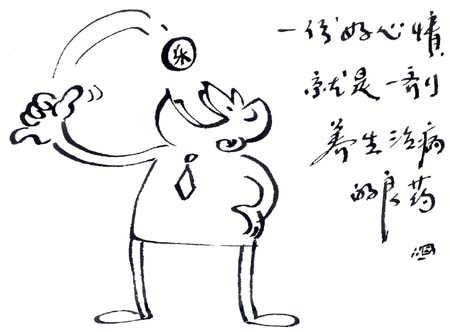 乐
一份好心情
就是一剂
养生治病
的良药